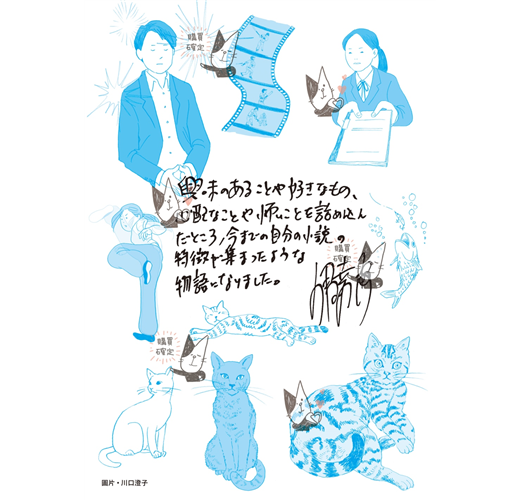 購買
確定
興味のあることや好きなもの、
心配なことや怖いことを詰め込ん
だところ、今までの自分の小説の
特徴が集まったような
物語になりました。
購買
確定
購買
確定
圖片・川口澄子